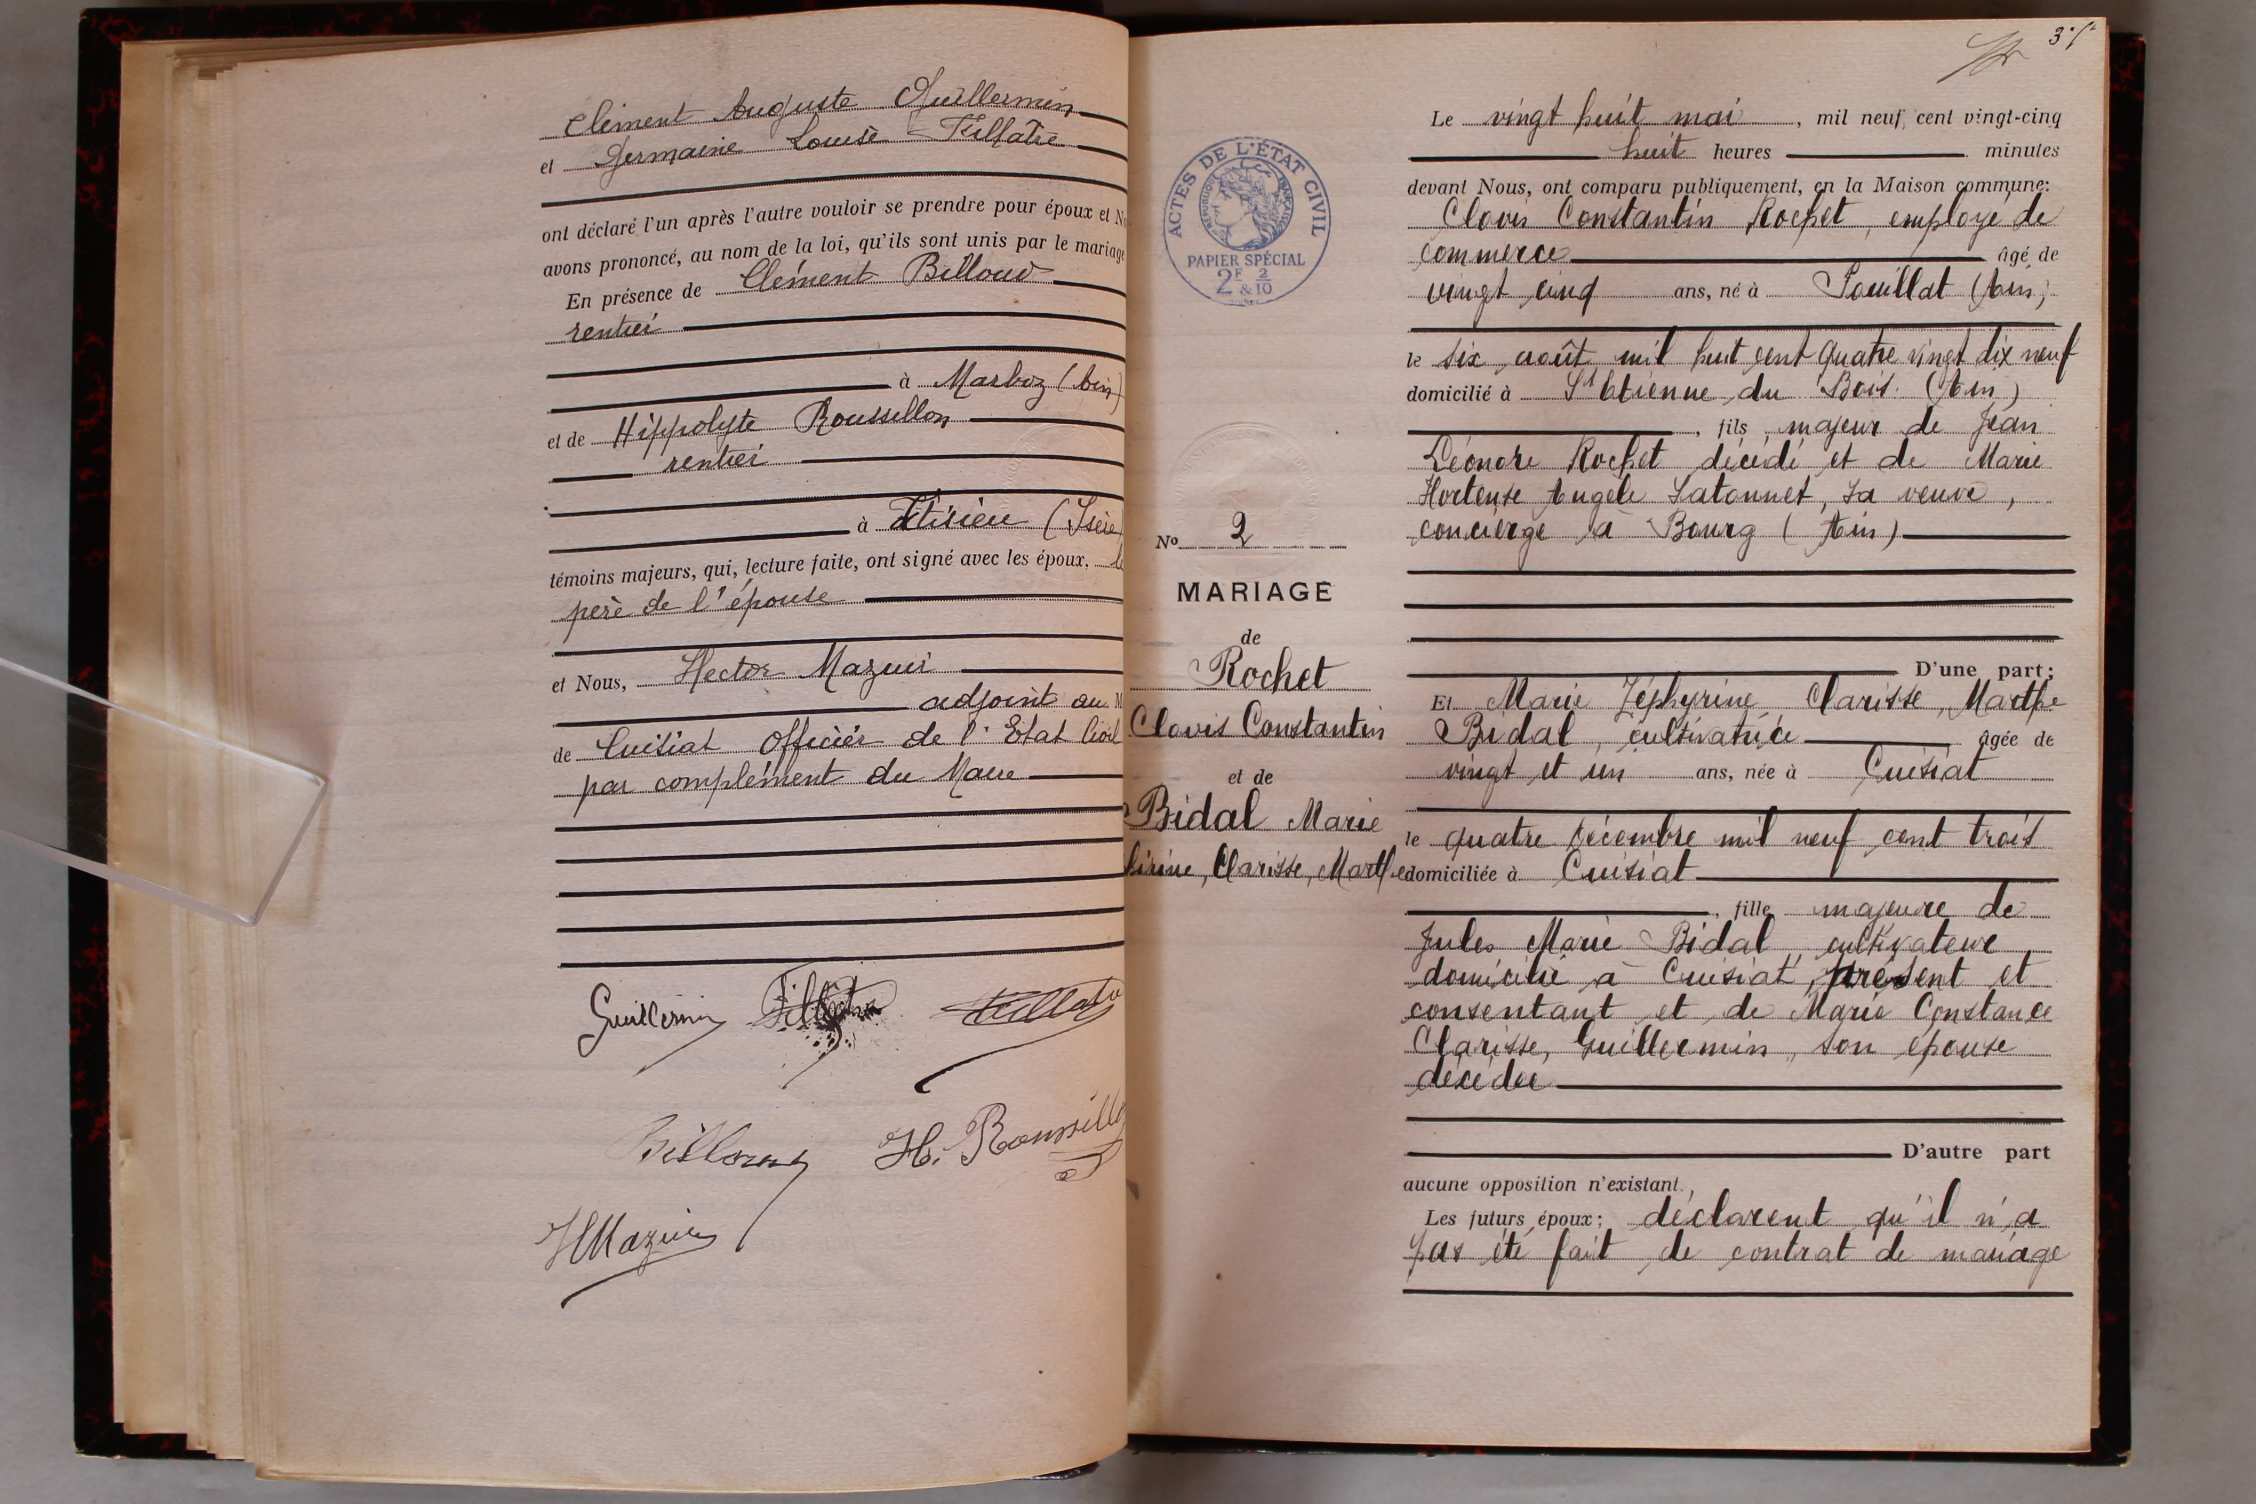 Clément Auguste Guillermin
et Germaine Louise Fillatre
ont déclaré l'un après l'autre vouloir se prendre pour époux et N
avons prononcé, au nom de la loi, qu'ils sont unis par le mariage
En présence de Clément Billoud
rentier
à Marboz (Ain)
et de Hippolyte Roussillon
rentier
à (Isère
témoins majeurs, qui, lecture faite, ont signé avec les époux, le
père de l'épouse
et Nous, Hector Mazuir
adjoint au M
de Cuisiat officier de l'Etat Civil
par complément du Maire
Guillermin Fillatre Fillatre
Billoud H. Roussillo
HMazuir
ACTES DE L'ÉTAT CIVIL
RÉPUBLIQUE FRANÇAISE
PAPIER SPÉCIAL
2F & 2/10
No 2
MARIAGE
de
Rochet
Clovis Constantin
et de
Bidal Marie
hirine, Clarisse, Marthe
Le vingt huit mai, mil neuf cent vingt-cinq
huit heures minutes
devant Nous, ont comparu publiquement, en la Maison commune:
Clovis Constantin Rochet, employé de
commerce âgé de
vingt cinq ans, né à Pouillat (Ain)
le six août mil huit cent quatre vingt dix neuf
domicilié à St Etienne du Bois (Ain)
, fils majeur de Jean
Léonore Rochet décédé et de Marie
Hortense Angèle Satonnet, sa veuve,
concierge à Bourg (Ain)
D'une part;
Et Marie Zéphyrine Clarisse, Marthe
Bidal, cultivatrice âgée de
vingt et un ans, née à Cuisiat
le quatre décembre mil neuf cent trois
domiciliée à Cuisiat
, fille majeure de
Jules Marie Bidal cultivateur
domicilié à Cuisiat, présent et
consentant et de Marie Constance
Clarisse, Guillermin, son épouse
décédée
D'autre part
aucune opposition n'existant.,
Les futurs époux; déclarent qu'il n'a
pas été fait de contrat de mariage